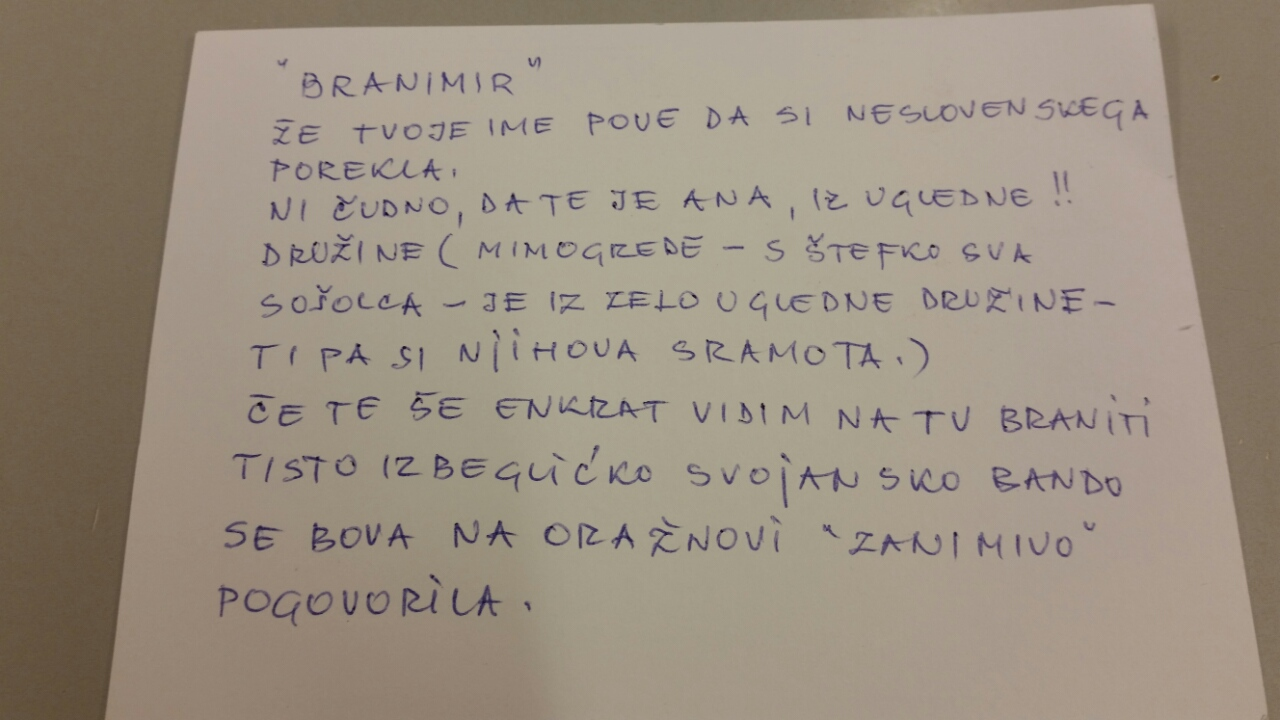 "BRANIMIR"
ŽE TVOJE IME POVE DA SI NESLOVENSKEGA
POREKLA.
NI ČUDNO, DA TE JE ANA, IZ UGLEDNE !!
DRUŽINE ( MIMOGREDE – S ŠTEFKO SVA
SOŠOLCA – JE IZ ZELO UGLEDNE DRUŽINE –
TI PA SI NJIHOVA SRAMOTA.)
ČE TE ŠE ENKRAT VIDIM NA TV BRANITI
TISTO IZBEGLIĆKO SVOJANSKO BANDO
SE BOVA NA ORAŽNOVI "ZANIMIVO"
POGOVORILA.